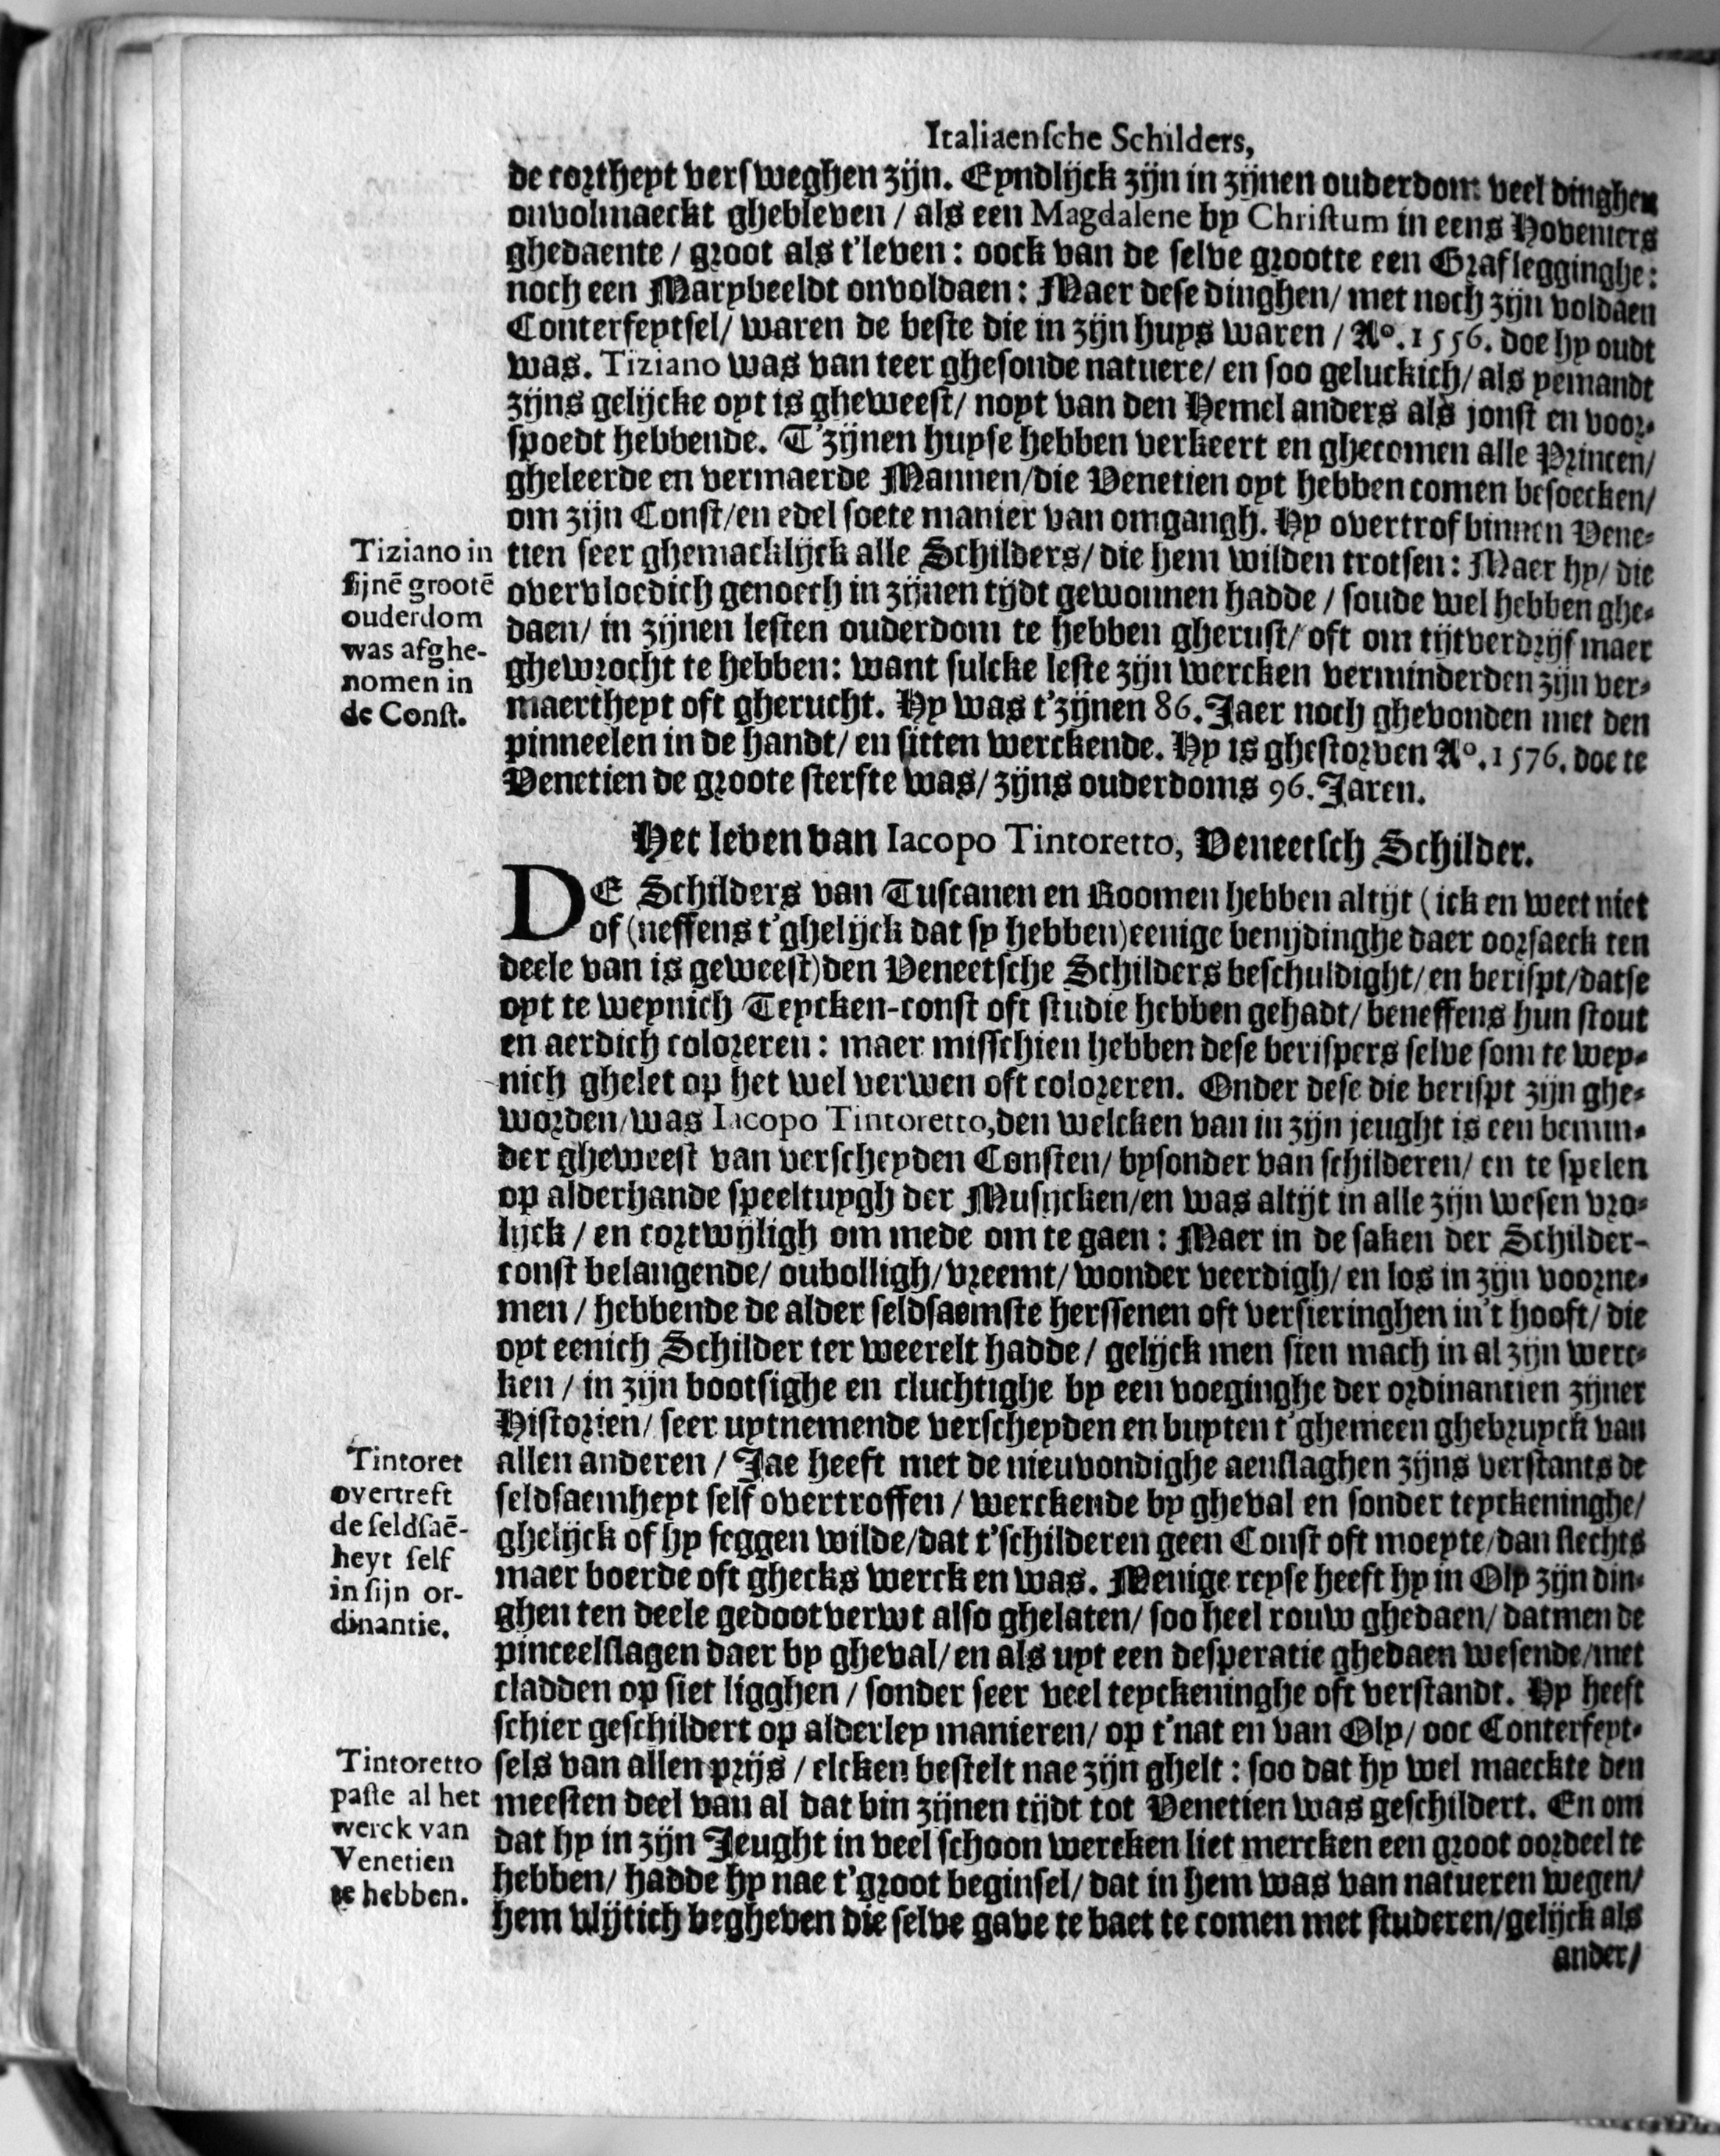 Italiaensche Schilders,
de cortheyt versweghen zijn. Eyndlijck zijn in zijnen ouderdom veel dinghen
onvolmaeckt ghebleven / als een Magdalene by Christum in eens Hoveniers
ghedaente / groot als t'leven : oock van de selve grootte een Graflegginghe :
noch een Marybeeldt onvoldaen : Maer dese dinghen / met noch zijn voldaen
Conterfeytsel / waren de beste die in zijn huys waren / Aº. 1556. doe hy oudt
was. Tiziano was van teer ghesonde natuere / en soo geluckich / als yemandt
zijns gelijcke oyt is gheweest / noyt van den Hemel anders als jonst en voor-
spoedt hebbende. T'zijnen huyse hebben verkeert en ghecomen alle Princen /
gheleerde en vermaerde Mannen / die Venetien oyt hebben comen besoecken /
om zijn Const / en edel soete manier van omgangh. Hy overtrof binnen Vene-
tien seer ghemacklijck alle Schilders / die hem wilden trotsen : Maer hy / die
overvloedich genoech in zijnen tijdt gewonnen hadde / soude wel hebben ghe-
daen / in zijnen lesten ouderdom te hebben gherust / oft om tijtverdrijf maer
ghewrocht te hebben : want sulcke leste zijn wercken verminderden zijn ver-
maertheyt oft gherucht. Hy was t'zijnen 86. Jaer noch ghevonden met den
pinneelen in de handt / en sitten werckende. Hy is ghestorven Aº. 1576. doe te
Venetien de groote sterfte was / zijns ouderdoms 96. Jaren.
Tiziano in
sijnē grootē
ouderdom
was afghe-
nomen in
de Const.
Het leven van Iacopo Tintoretto, Veneetsch Schilder.
DE Schilders van Tuscanen en Roomen hebben altijt (ick en weet niet
of (neffens t'ghelijck dat sy hebben) eenige benijdinghe daer oorsaeck ten
deele van is geweest) den Veneetsche Schilders beschuldight / en berispt / datse
oyt te weynich Teycken-const oft studie hebben gehadt / beneffens hun stout
en aerdich coloreren : maer misschien hebben dese berispers selve som te wey-
nich ghelet op het wel verwen oft coloreren. Onder dese die berispt zijn ghe-
worden / was Iacopo Tintoretto, den welcken van in zijn jeught is een bemin-
der gheweest van verscheyden Consten / bysonder van schilderen / en te spelen
op alderhande speeltuygh der Musijcken / en was altijt in alle zijn wesen vro-
lijck / en cortwijligh om mede om te gaen : Maer in de saken der Schilder-
const belangende / oubolligh / vreemt / wonder veerdigh / en los in zijn voorne-
men / hebbende de alder seldsaemste herssenen oft versieringhen in't hooft / die
oyt eenich Schilder ter weerelt hadde / gelijck men sien mach in al zijn werc-
ken / in zijn bootsighe en cluchtighe by een voeginghe der ordinantien zijner
Historien / seer uytnemende verscheyden en buyten t'ghemeen ghebruyck van
allen anderen / Jae heeft met de nieuvondighe aenslaghen zijns verstants de
seldsaemheyt self overtroffen / werckende by gheval en sonder teyckeninghe /
ghelijck of hy seggen wilde / dat t'schilderen geen Const oft moeyte / dan slechts
maer boerde oft ghecks werck en was. Menige reyse heeft hy in Oly zijn din-
ghen ten deele gedootverwt also ghelaten / soo heel rouw ghedaen / datmen de
pinceelslagen daer by gheval / en als uyt een desperatie ghedaen wesende / met
cladden op siet ligghen / sonder seer veel teyckeninghe oft verstandt. Hy heeft
schier geschildert op alderley manieren / op t'nat en van Oly / ooc Conterfeyt-
sels van allen prijs / elcken bestelt nae zijn ghelt : soo dat hy wel maeckte den
meesten deel van al dat bin zijnen tijdt tot Venetien was geschildert. En om
dat hy in zijn Jeught in veel schoon wercken liet mercken een groot oordeel te
hebben / hadde hy nae t'groot beginsel / dat in hem was van natueren wegen /
hem vlijtich begheven die selve gave te baet te comen met studeren / gelijck als
Tintoret
overtreft
de seldsaē-
heyt self
in sijn or-
dinantie.
Tintoretto
paste al het
werck van
Venetien
te hebben.
ander /